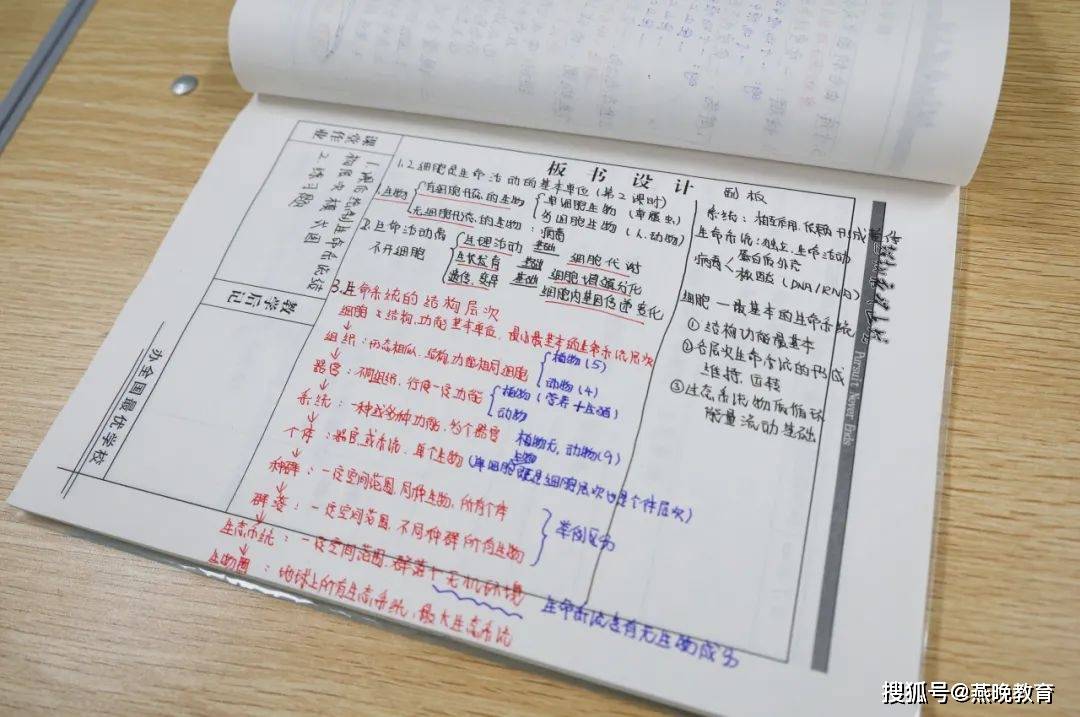 板书设计
副板
课堂作业
1.课后热
2.练习题
教学后记
办全国最优学校
1.2细胞是生命活动的基本单位(第2课时)
1.生物
有细胞形态的生物
单细胞生物(草履虫)
多细胞生物(人、动物)
无细胞形态的生物:病毒
2.生命活动离不开细胞
生理活动 基础 细胞代谢
生长发育 基础 细胞增殖分化
遗传、变异 基础 细胞内基因传递变化
3.生命系统的结构层次
细胞:结构、功能基本单位,最小最基本的生命系统层次
组织:形态相似,结构、功能相同细胞
植物(5)
动物(4)
器官:不同组织,行使一定功能
植物(营养+生殖)
动物
系统:一种或多种功能,多个器官
植物无,动物(9)
个体:器官或系统,单个生物(单细胞生物既是细胞层次也是个体层次)
种群:一定空间范围,同种生物,所有个体
群落:一定空间范围,不同种群所有生物
举例区分
生态系统:一定空间范围,群落+无机环境
生物圈:地球上所有生态系统,最大生态系统
生命系统含有无生物成分
系统:相互作用、依赖 形成整体
生命系统:独立、生命活动
病毒
蛋白质外壳
核酸(DNA/RNA)
细胞—最基本的生命系统
①结构功能最基本
②各层次生命系统的形成
维持、运转
③生态系统物质循环
能量流动基础
Pursuit Never Ends
搜狐号@燕晚教育